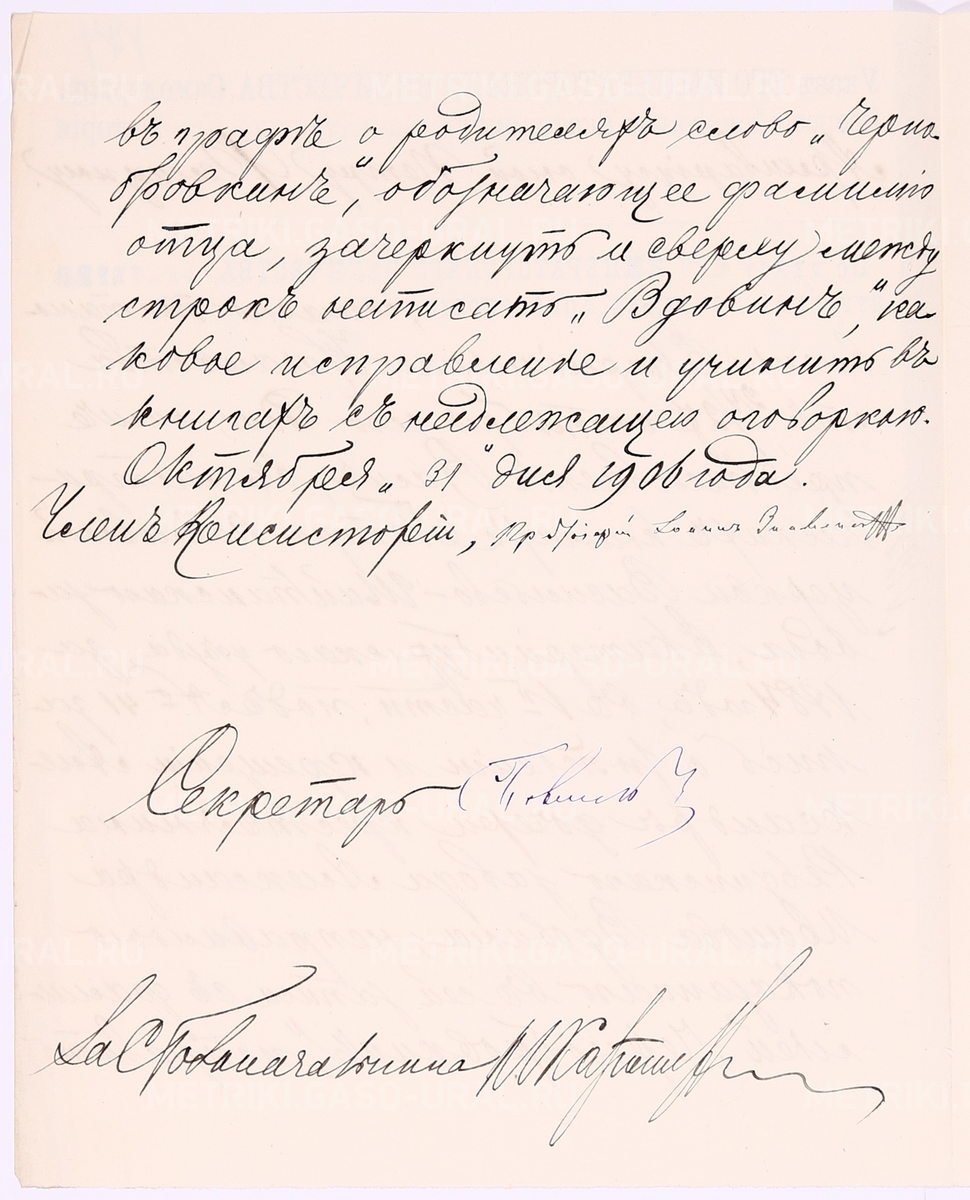 въ графѣ о родителяхъ слово „Черно-
бровкинъ“, обозначающее фамилію
отца, зачеркнуть и сверху между
строкъ написать „Вдовинъ“, ка-
ковое исправленіе и учинить въ
книгахъ съ надлежащею оговоркою.
Октября „31“ дня 1906 года.
Членъ Консисторіи, Іоаннъ
Секретарь
За Столоначальника
METRIKI.GASO-URAL.RU